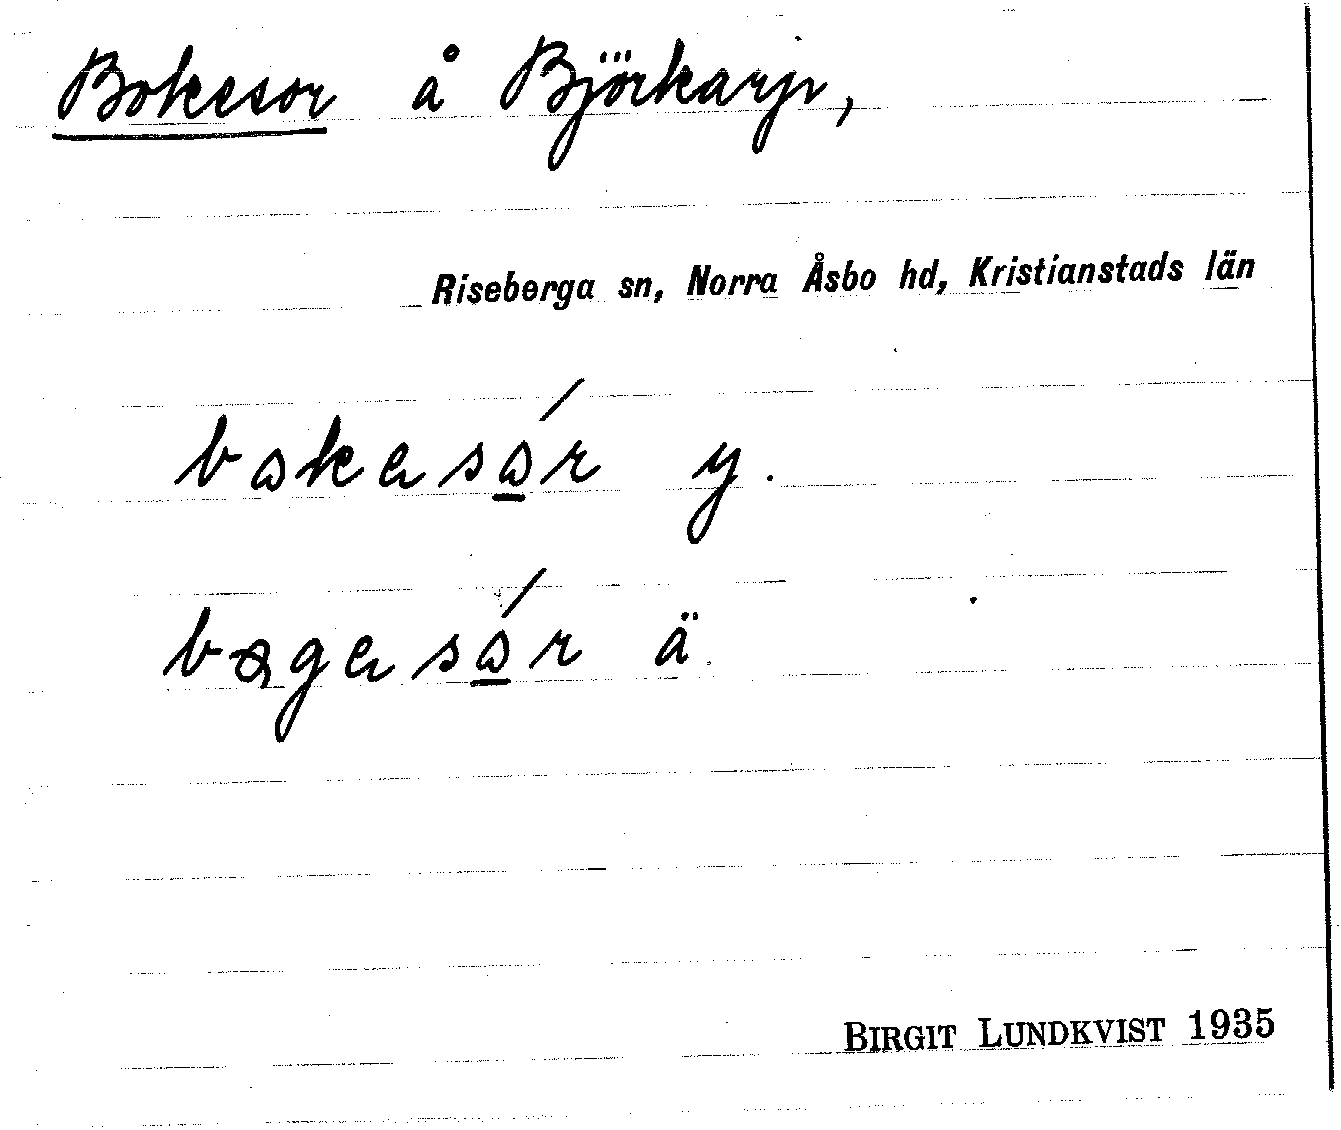 Bokesor å Björkarp,
Riseberga sn, Norra Åsbo hd, Kristianstads län
bokesór y.
bogesór ä.
BIRGIT LUNDKVIST 1935